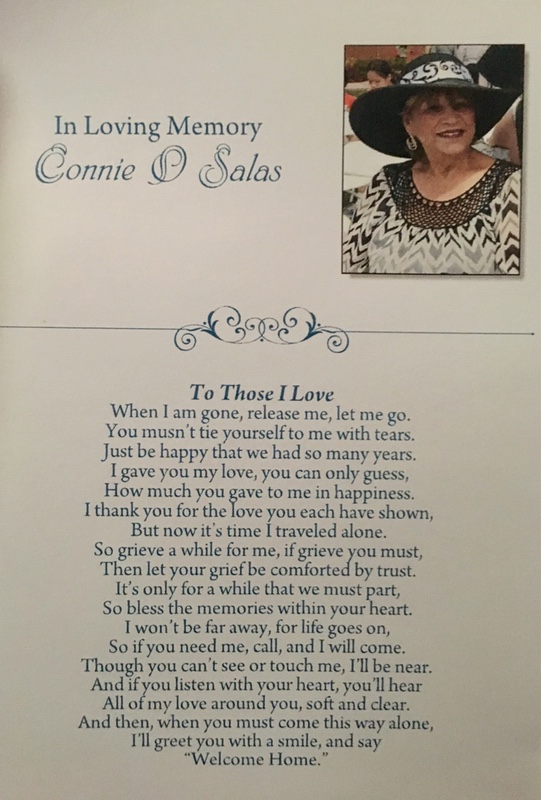 In Loving Memory
Connie O Salas
To Those I Love
When I am gone, release me, let me go.
You musn't tie yourself to me with tears.
Just be happy that we had so many years.
I gave you my love, you can only guess,
How much you gave to me in happiness.
I thank you for the love you each have shown,
But now it's time I traveled alone.
So grieve a while for me, if grieve you must,
Then let your grief be comforted by trust.
It's only for a while that we must part,
So bless the memories within your heart.
I won't be far away, for life goes on,
So if you need me, call, and I will come.
Though you can't see or touch me, I'll be near.
And if you listen with your heart, you'll hear
All of my love around you, soft and clear.
And then, when you must come this way alone,
I'll greet you with a smile, and say
"Welcome Home."